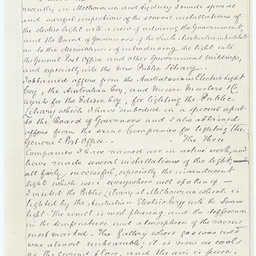 recently, in Melbourne and Sydney I made special
and careful inspection of the several installations of
the electric light with a view of advising the Government
and the Board of Governors of the South Australian Institute
as to the desirableness of introducing the light into
the General Post Office and other Government buildings,
and especially into the New Public Library.
I obtained offers from the Australasian Electric Light
Coy, the Australian Coy, and Messrs Masters &
agents for the Edison Coy, for lighting the Public
Library which I have embodied in a special report
to the Board of Governors and I also obtained
offers from the same Companies for lighting the
General Post Office. The Three
Companies I have named are in active work, and
have made several installations of the light,
all fairly successful, especially the incandescent
light which were everywhere well spoken of
I visited the Public Library at Melbourne which is
lighted by the Australian Electric Coy with the Swan
light. The result is most pleasing and the difference
in the temperature and atmosphere of the rooms
most marked. The Gallery where gas was used
was almost unbearable; it is now as cool
as the Ground floor, and the air is pure.